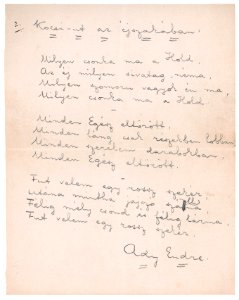 2.
Kocsi-út az éjszakában.
Milyen csonka ma a Hold,
Az éj milyen sivatag, néma,
Milyen szomoru vagyok én ma,
Milyen csonka ma a Hold.
Minden Egész eltörött,
Minden láng csak részekben lobban,
Minden szerelem darabokban,
Minden Egész eltörött.
Fut velem egy rossz szekér,
Utána mintha jajszó szállna,
Félig mély csönd és félig lárma,
Fut velem egy rossz szekér.
Ady Endre.